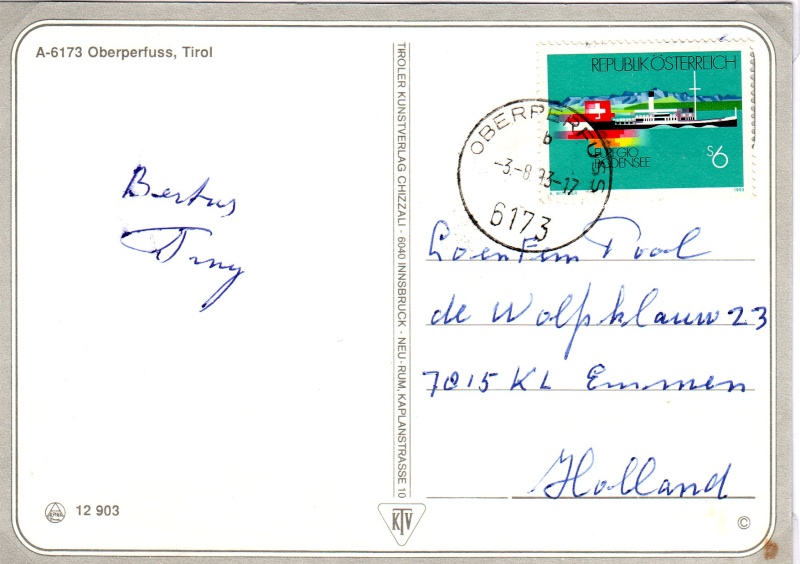 A-6173 Oberperfuss, Tirol
REPUBLIK ÖSTERREICH
S6
EUREGIO
BODENSEE
1993
OBERPERFUSS
b
-3.-8.93-17
6173
Bertus
TIROLER KUNSTVERLAG CHIZZALI - 6040 INNSBRUCK - NEU-RUM, KAPLANSTRASSE 10
de Wolfsklauw 23
7815 KL Emmen
Holland
12 903
KTV
©